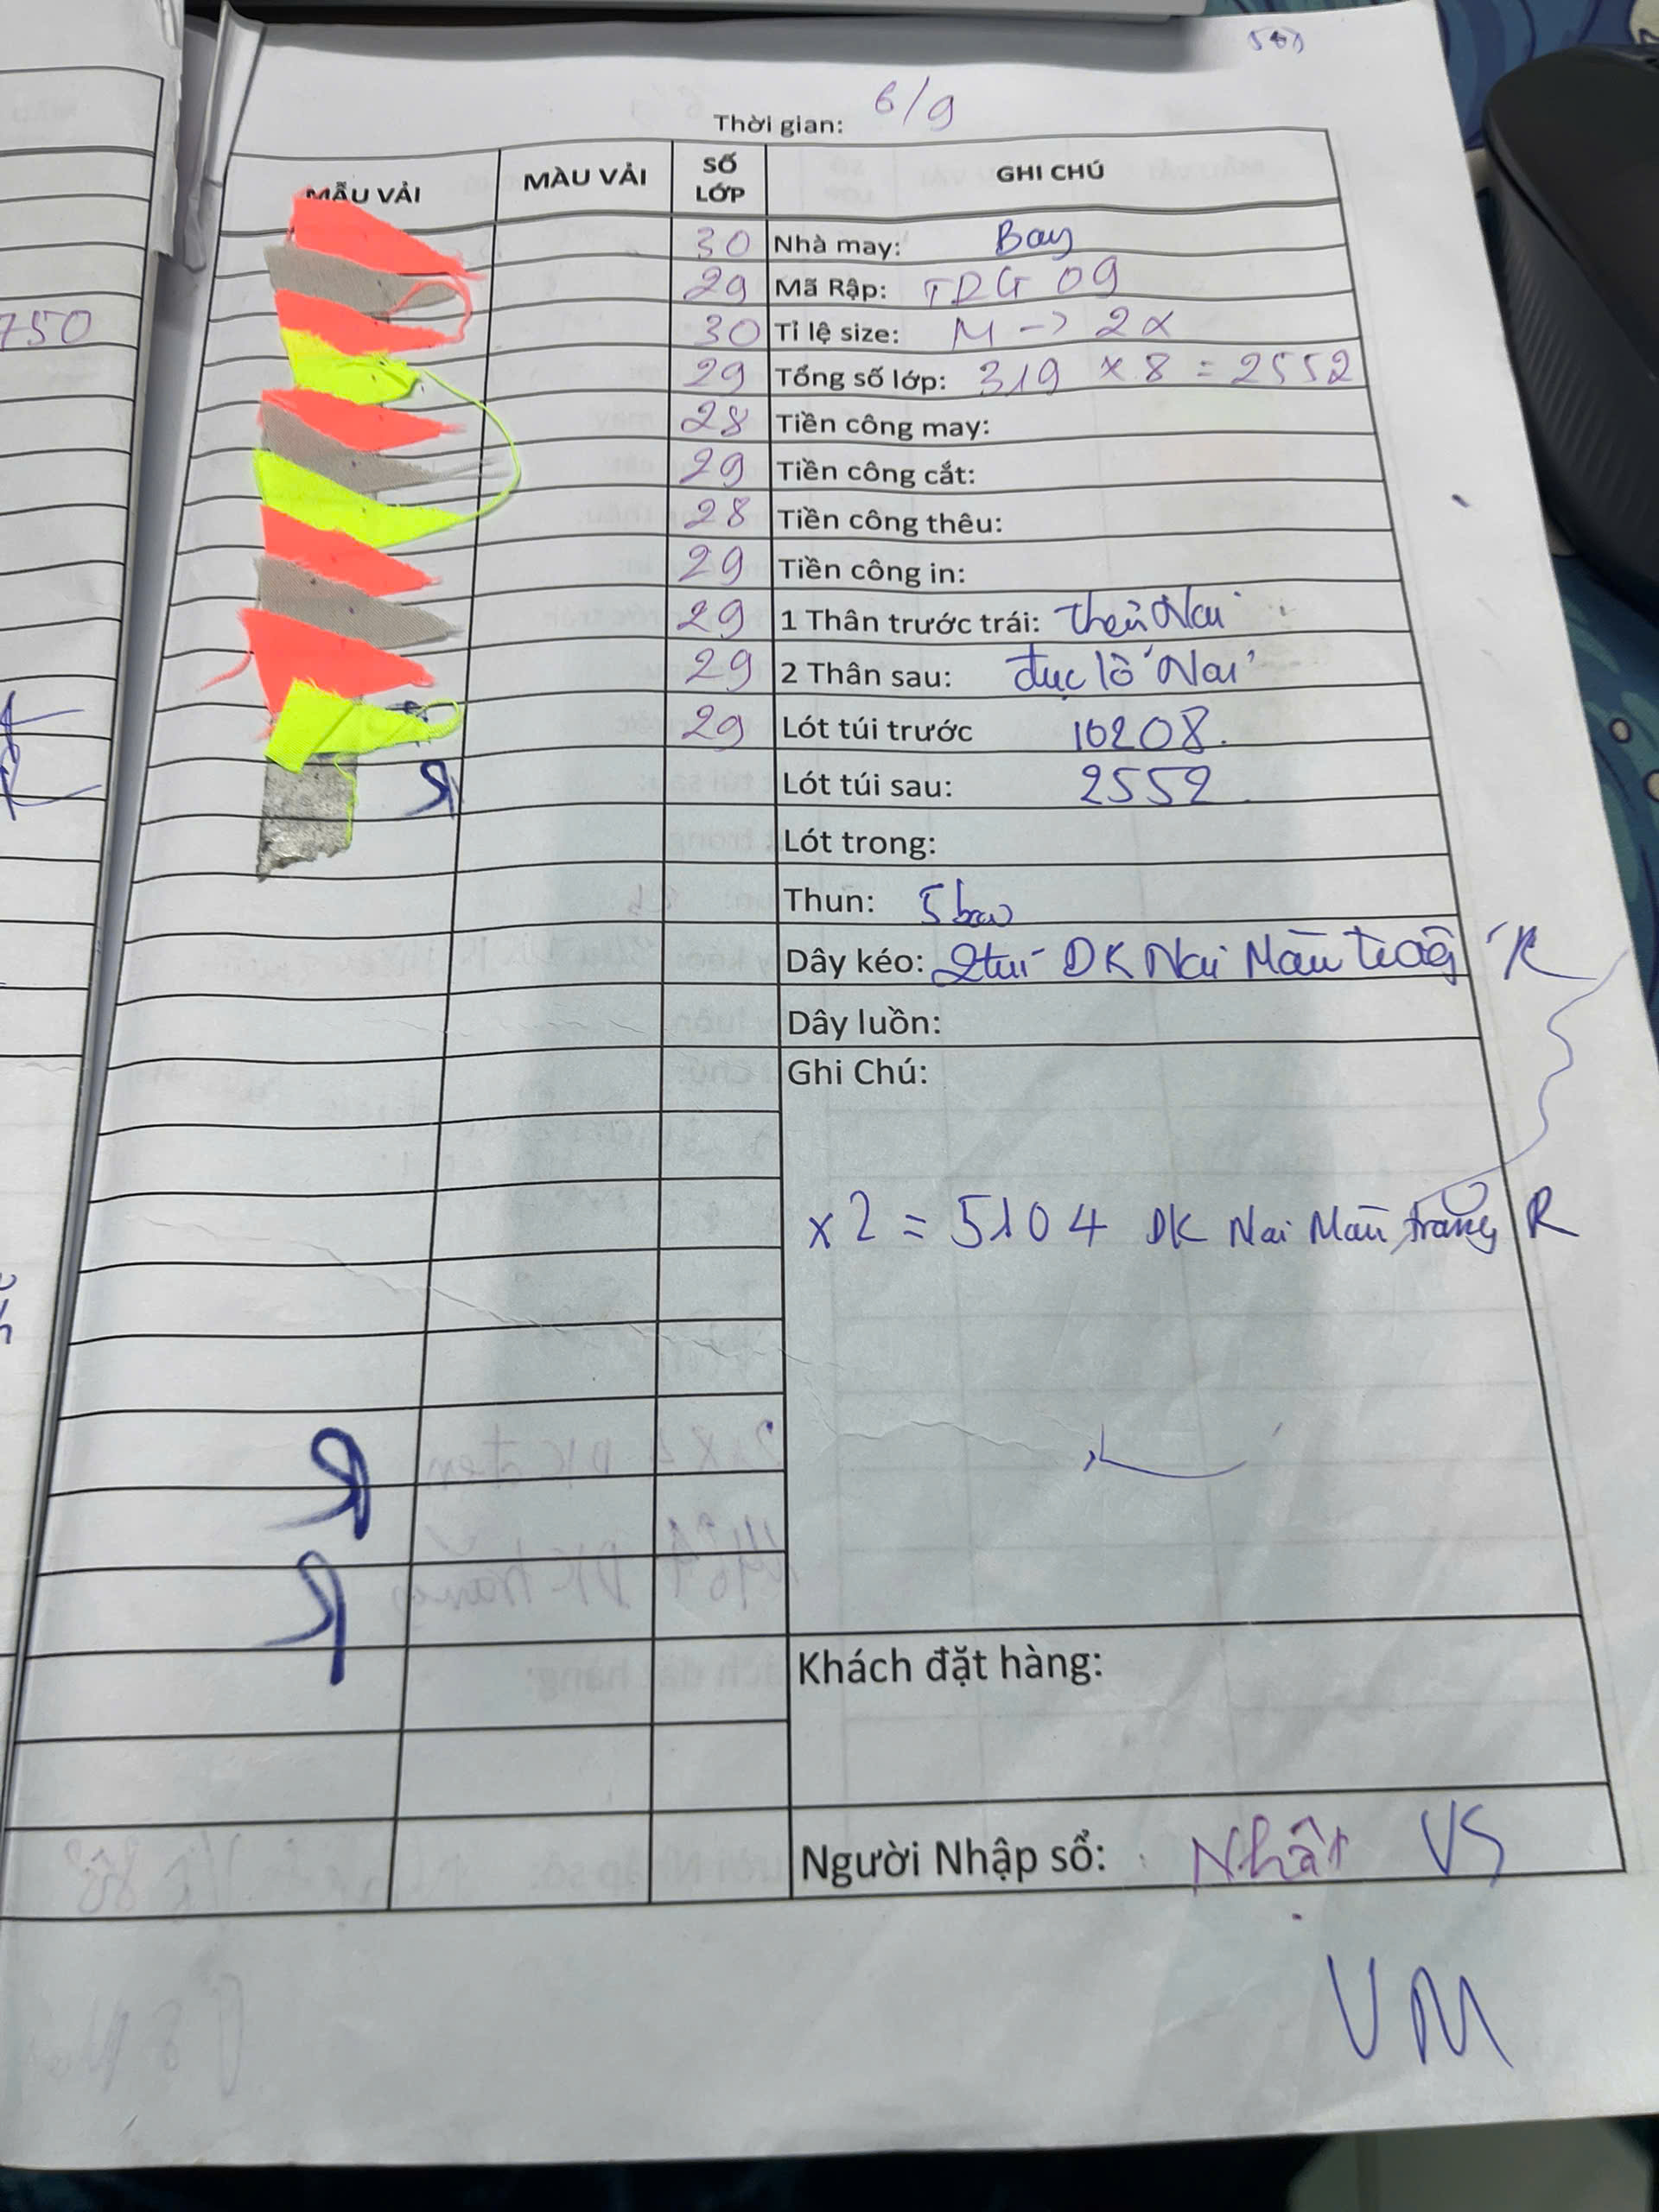 Thời gian: 6/9
MẪU VẢI MÀU VẢI SỐ LỚP GHI CHÚ
30 Nhà may: Bay
29 Mã Rập: TDG 09
30 Tỉ lệ size: M -> 2X
29 Tổng số lớp: 319 x 8 = 2552
28 Tiền công may:
29 Tiền công cắt:
28 Tiền công thêu:
29 Tiền công in:
29 1 Thân trước trái: thêu Nai
29 2 Thân sau: đục lỗ "Nai"
29 Lót túi trước 10208.
Lót túi sau: 2552
Lót trong:
Thun: 5 bao
Dây kéo: 2 túi DK Nai Màu trắng R
Dây luồn:
Ghi Chú:
x2 = 5104 DK Nai Màu trắng R
Khách đặt hàng:
Người Nhập sổ: Nhật VS
VM
750